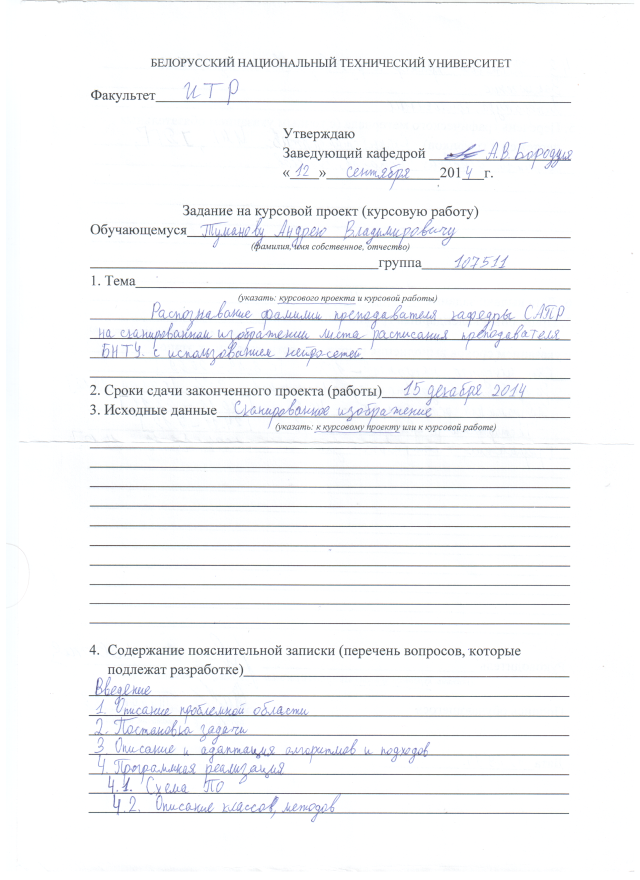 БЕЛОРУССКИЙ НАЦИОНАЛЬНЫЙ ТЕХНИЧЕСКИЙ УНИВЕРСИТЕТ
Факультет ИТР
Утверждаю
Заведующий кафедрой А.В. Бородуля
«12» сентября 2014 г.
Задание на курсовой проект (курсовую работу)
Обучающемуся Туманову Андрею Владимировичу
(фамилия, имя собственное, отчество)
группа 107511
1. Тема
(указать: курсового проекта и курсовой работы)
Распознавание фамилии преподавателя кафедры САПР
на сканированном изображении листа расписания преподавателя
БНТУ с использованием нейросетей
2. Сроки сдачи законченного проекта (работы) 15 декабря 2014
3. Исходные данные Сканированное изображение
(указать: к курсовому проекту или к курсовой работе)
4. Содержание пояснительной записки (перечень вопросов, которые
подлежат разработке)
Введение
1. Описание проблемной области
2. Постановка задачи
3. Описание и адаптация алгоритмов и подходов
4. Программная реализация
4.1. Схема ПО
4.2. Описание классов, методов